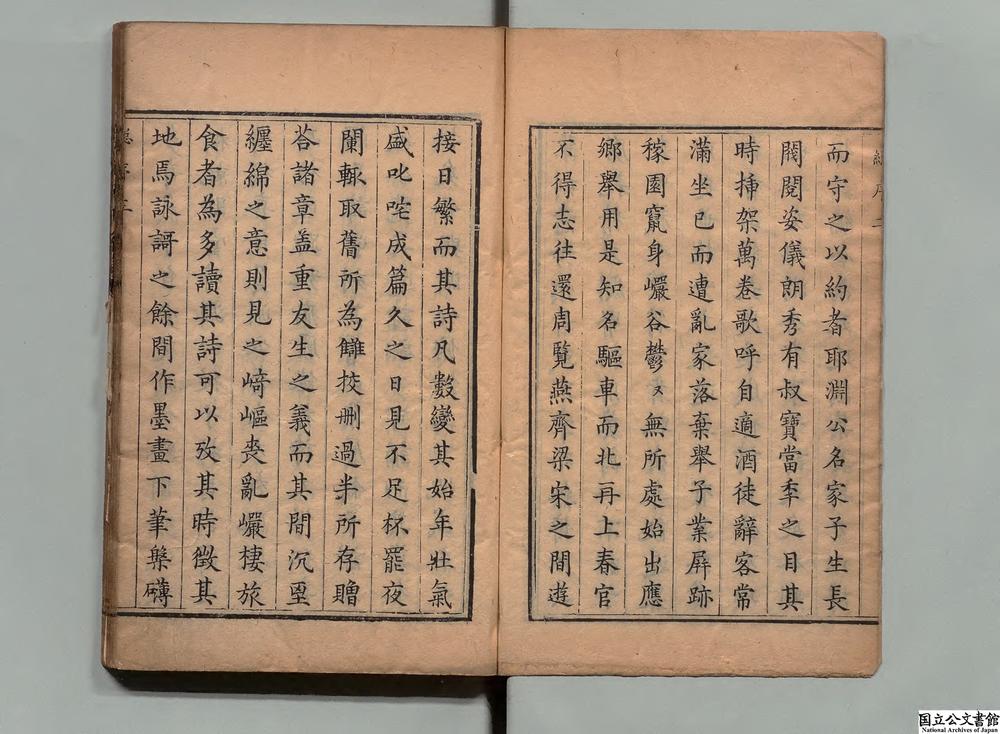 而守之以約者耶淵公名家子生長
閥閱姿儀朗秀有叔寶當年之目其
時揷架萬卷歌呼自適酒徒辭客常
滿坐已而遭亂家落棄舉子業屏跡
稼園竄身巖谷鬱〻無所處始出應
鄉舉用是知名驅車而北再上春官
不得志往還周覽燕齊梁宋之間遊
接日繁而其詩凡數變其始年壯氣
盛叱咤成篇久之日見不足杯罷夜
闌輙取舊所為讎挍刪過半所存贈
荅諸章葢重友生之義而其間沉鬱
纏綿之意則見之﨑嶇喪亂巖棲旅
食者為多讀其詩可以攷其時徵其
地焉詠謌之餘間作墨畫下筆槃礴
国立公文書館
National Archives of Japan